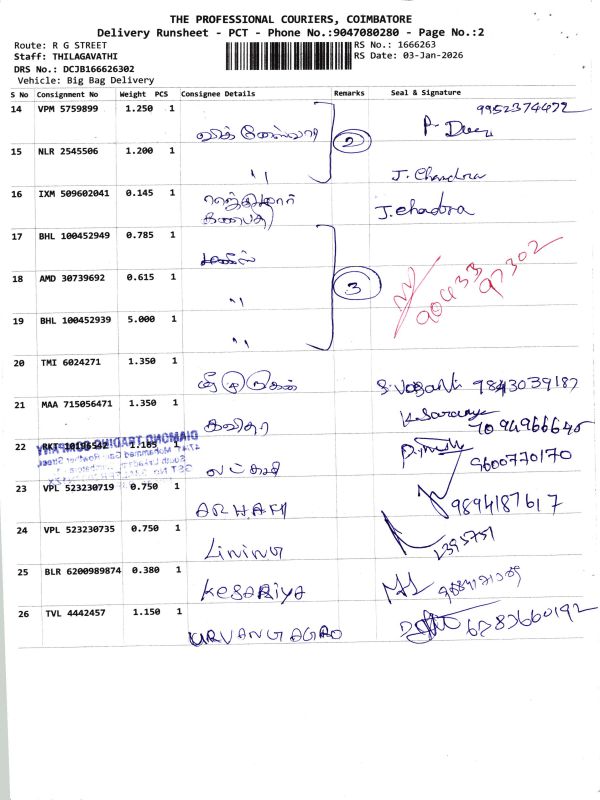 THE PROFESSIONAL COURIERS, COIMBATORE
Delivery Runsheet - PCT - Phone No.:9047080280 - Page No.:2
Route: R G STREET RS No.: 1666263
Staff: THILAGAVATHI RS Date: 03-Jan-2026
DRS No.: DCJB166626302
Vehicle: Big Bag Delivery
S No Consignment No Weight PCS Consignee Details Remarks Seal & Signature
14 VPM 5759899 1.250 1 9952374472
2
15 NLR 2545506 1.200 1 " J. Chandra
16 IXM 509602041 0.145 1 கணபதி J. Chadra
17 BHL 100452949 0.785 1
18 AMD 30739692 0.615 1 " 3 90433 97302
19 BHL 100452939 5.000 1 "
20 TMI 6024271 1.350 1 ஸ்ரீ முருகன் 9843039187
21 MAA 715056471 1.350 1 கவிதா
22 1.165 1 லட்சுமி 9600770170
23 VPL 523230719 0.750 1 ARHAM 9894187617
24 VPL 523230735 0.750 1 Lining
25 BLR 6200989874 0.380 1 Kesariya
26 TVL 4442457 1.150 1 URVANG AGRO 6283660192